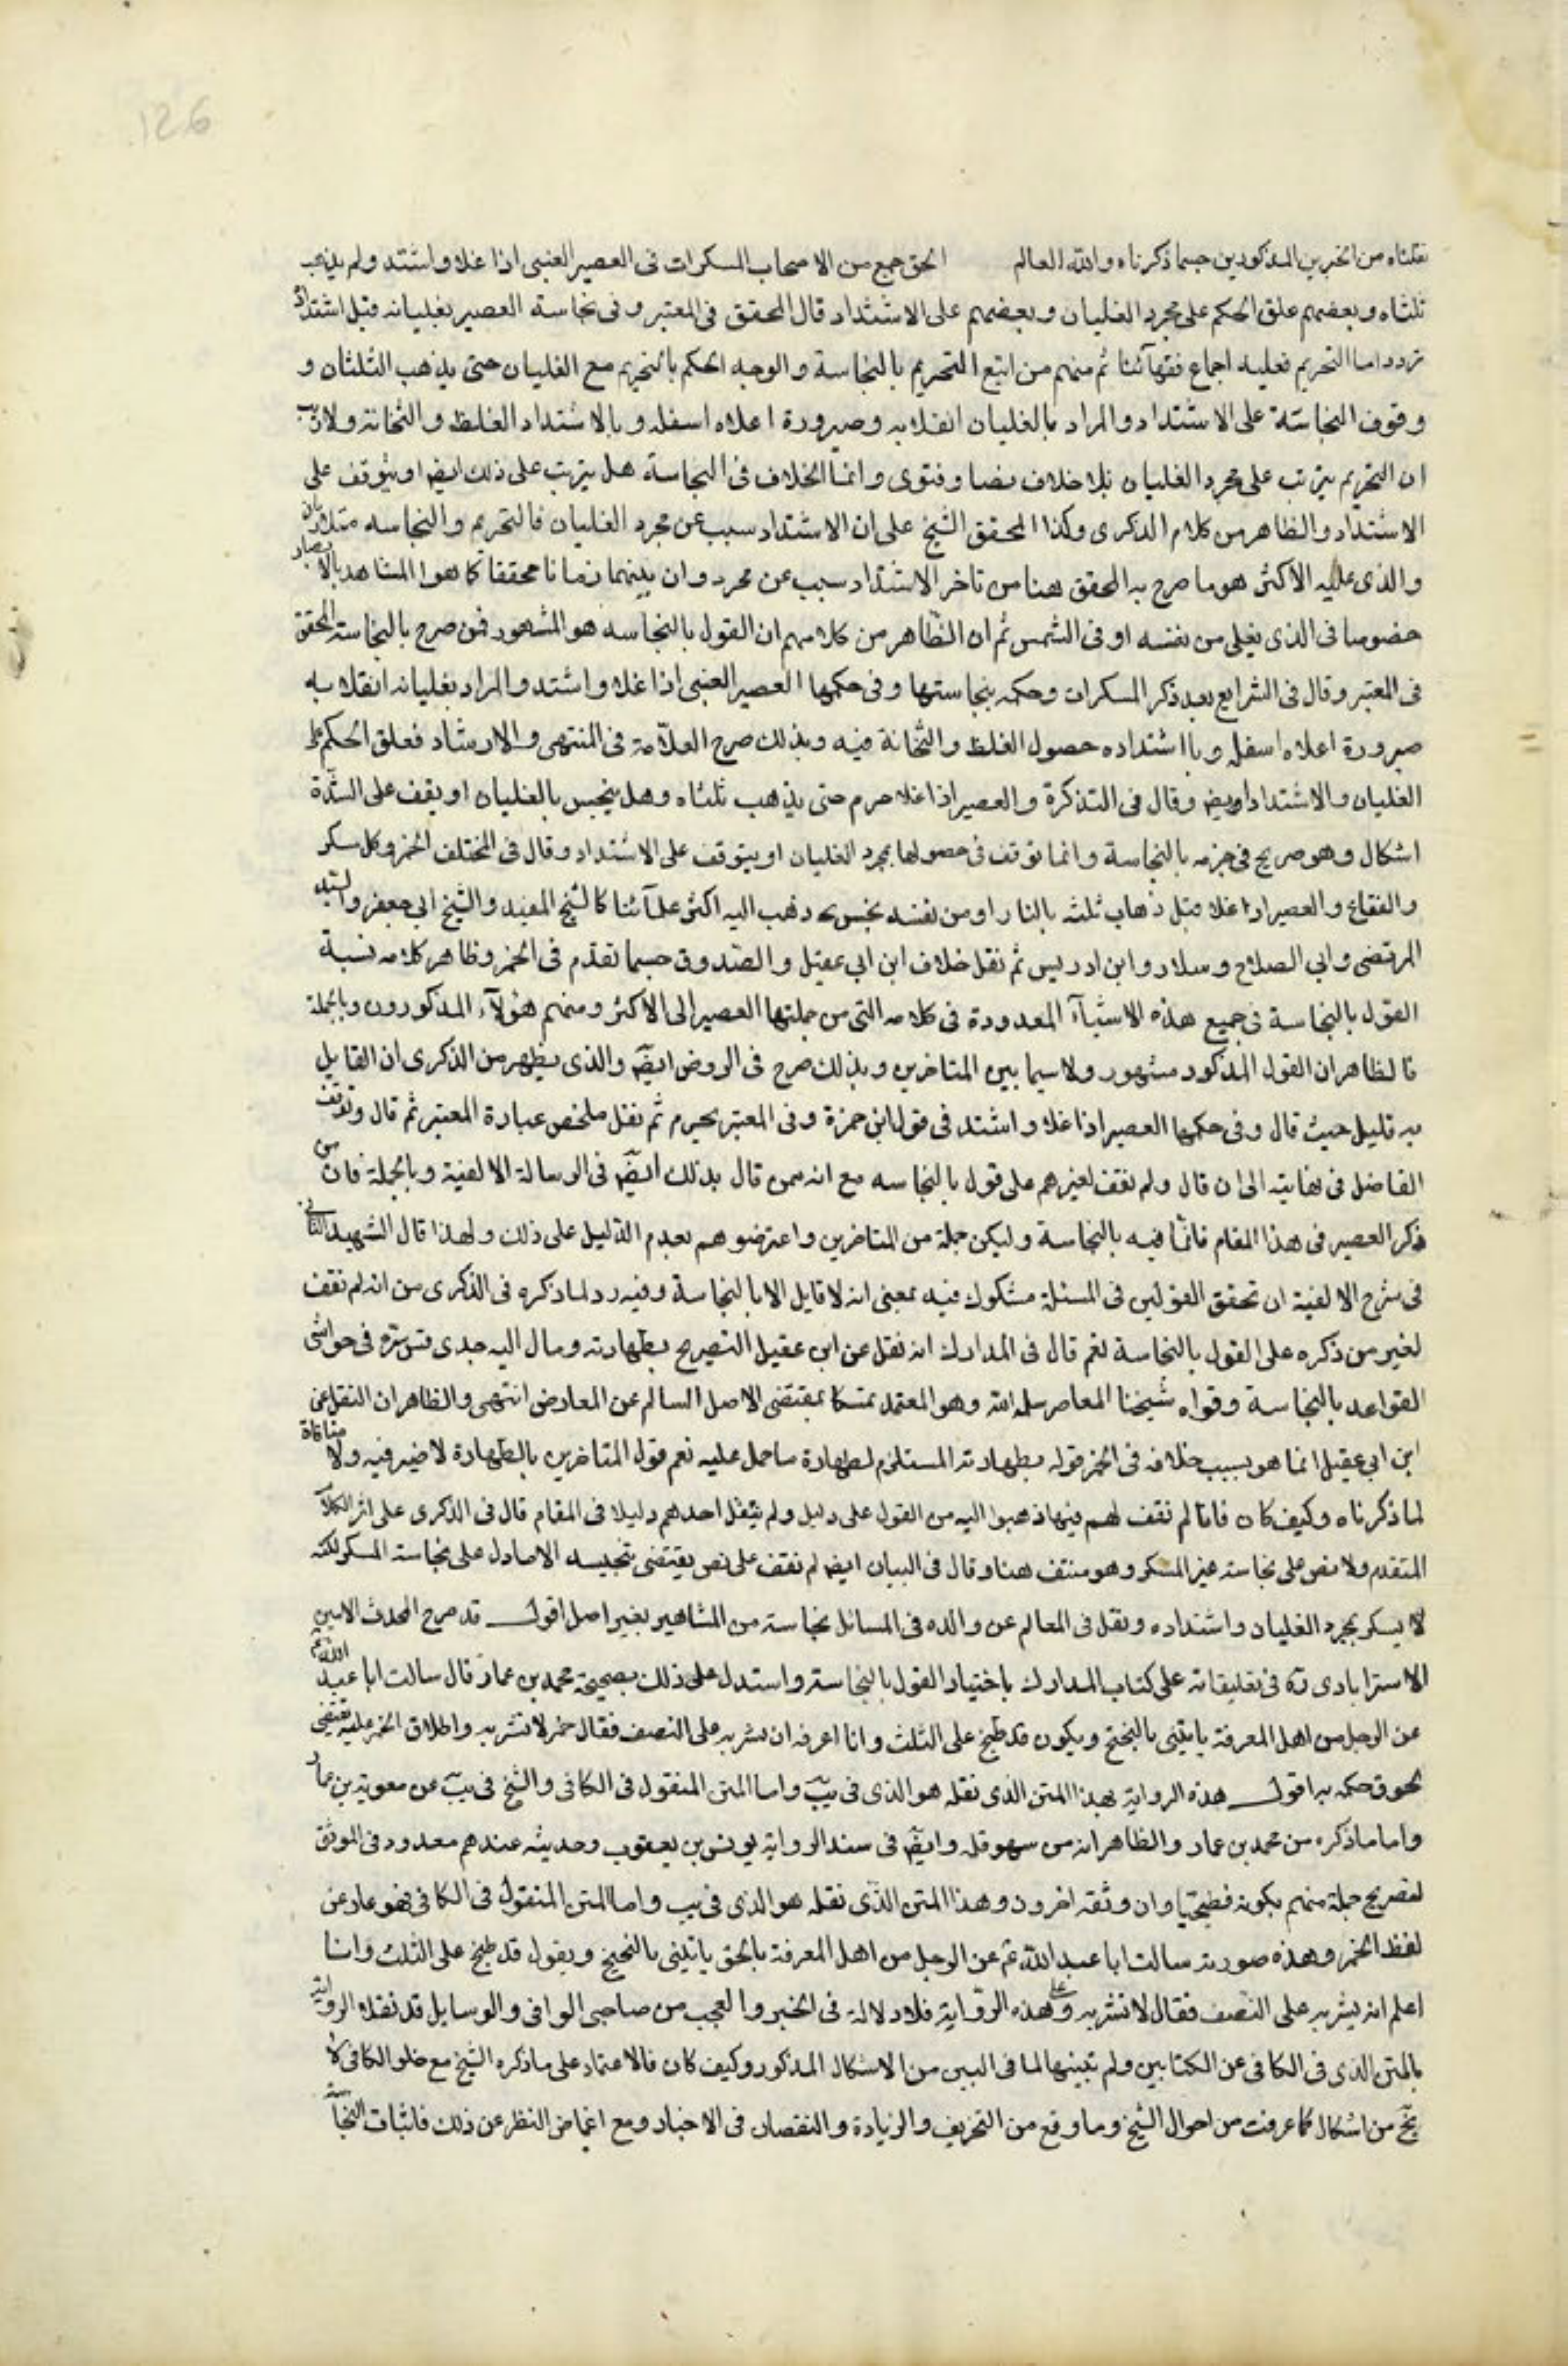 126
نقلناه من الخبرين المذكورين حسبما ذكرناه والله العالم الحق جمع من الاصحاب المسكرات فى العصير العنبى اذا غلا واشتد ولم يذهب
ثلثاه وبعضهم علق الحكم على مجرد الغليان وبعضهم على الاشتداد قال المحقق فى المعتبر وفى نجاسة العصير بغليانه قبل اشتداده
تردد اما التحريم فعليه اجماع فقهآئنا ثم منهم من اتبع التحريم بالنجاسة والوجه الحكم بالتحريم مع الغليان حتى يذهب الثلثان و
وقوف النجاسة على الاشتداد والمراد بالغليان انقلابه وصيرورة اعلاه اسفله وبالاشتداد الغلظ والثخانة ولا ريب
ان التحريم يترتب على مجرد الغليان بلا خلاف نصا وفتوى وانما الخلاف فى النجاسة هل يترتب على ذلك ايضا او يتوقف على
الاشتداد والظاهر من كلام الذكرى وكذا المحقق الشيخ على ان الاشتداد سبب عن مجرد الغليان فالتحريم والنجاسه متلازمان
والذى عليه الاكثر هو ما صرح به المحقق هنا من تاخر الاشتداد سبب عن مجرد وان بينهما زمانا محققا كما هو المشاهد بالابصار
خصوصا فى الذى يغلى من نفسه او فى الشمس ثم ان الظاهر من كلامهم ان القول بالنجاسه هو المشهور فمن صرح بالنجاسة المحقق
فى المعتبر وقال فى الشرايع بعد ذكر المسكرات وحكمه بنجاستها وفى حكمها العصير العنبى اذا غلا واشتد والمراد بغليانه انقلابه
صيرورة اعلاه اسفله وبااشتداده حصول الغلظ والثخانة فيه وبذلك صرح العلامة فى المنتهى والارشاد فعلق الحكم على
الغليان والاشتداد ايضا وقال فى التذكرة والعصير اذا غلا حرم حتى يذهب ثلثاه وهل ينجس بالغليان او يقف على الشدة
اشكال وهو صريح فى جزمه بالنجاسة وانما توقف فى حصولها بمجرد الغليان او يتوقف على الاشتداد وقال فى المختلف الخمر وكل مسكر
والفقاع والعصير اذا غلا قبل ذهاب ثلثه بالنار او من نفسه نجس ذهب اليه اكثر علمآئنا كالشيخ المفيد والشيخ ابى جعفر والسيد
المرتضى وابى الصلاح وسلار وابن ادريس ثم نقل خلاف ابن ابى عقيل والصدوق حسبما تقدم فى الخمر وظاهر كلامه نسبة
القول بالنجاسة فى جميع هذه الاشيآء المعدودة فى كلامه التى من جملتها العصير الى الاكثر ومنهم هؤلآء المذكورون وبالجملة
فالظاهر ان القول المذكور مشهور ولاسيما بين المتاخرين وبذلك صرح فى الروض ايضا والذى يظهر من الذكرى ان القايل
به قليل حيث قال وفى حكمها العصير اذا غلا واشتد فى قول ابن حمزة وفى المعتبر يحرم ثم نقل ملخص عبارة المعتبر ثم قال وتوقف
الفاضل فى نهايته الى ان قال ولم نقف لغيرهم على قول بالنجاسه مع انه ممن قال بذلك ايضا فى الرسالة الالفية وبالجملة فان من
ذكر العصير فى هذا المقام فانما فيه بالنجاسة وليكن جملة من المتاخرين واعترضوهم بعدم الدليل على ذلك ولهذا قال الشهيد الثانى
فى شرح الالفية ان تحقق القولين فى المسئلة مشكوك فيه بمعنى انه لا قايل الا بالنجاسة وفيه رد لما ذكره فى الذكرى من انه لم نقف
لغير من ذكره على القول بالنجاسة نعم قال فى المدارك انه نقل عن ابن عقيل التصريح بطهارته ومال اليه جدى قدس سره فى حواشى
القواعد بالنجاسة وقواه شيخنا المعاصر سلمه الله وهو المعتمد تمسكا بمقتضى الاصل السالم عن المعارض انتهى والظاهر ان النقل عن
ابن ابى عقيل انما هو بسبب خلافه فى الخمر قوله بطهارته المستلزم لطهارة ما حمل عليه نعم قول المتاخرين بالطهارة لا ضير فيه ولا منافاة
لما ذكرناه وكيف كان فانا لم نقف لهم فيها ذهبوا اليه من القول على دليل ولم ينقل احدهم دليلا فى المقام قال فى الذكرى على اثر الكلام
المتقدم ولا نص على نجاسة غير المسكر وهو منتف هنا وقال فى البيان ايضا لم نقف على نص يقتضى تنجيسه الا ما دل على نجاسة المسكر لكنه
لا يسكر بمجرد الغليان واشتداده ونقل فى المعالم عن والده فى المسائل نجاسته من المشاهير بغير اصل اقول قد صرح المحدث الامين
الاسترابادى ره فى تعليقاته على كتاب المدارك باختيار القول بالنجاسة واستدل على ذلك بصحيحة محمد بن عمار قال سالت ابا عبد الله ع
عن الرجل من اهل المعرفة ياتينى بالبختج ويكون قد طبخ على الثلث وانا اعرفه ان يشربه على النصف فقال خمر لا تشربه واطلاق الخمر عليه يقتضى
لحوق حكمه به اقول هذه الرواية بهذا المتن الذى نقله هو الذى فى يب واما المتن المنقول فى الكافى والشيخ فى يب عن معوية بن عمار
واما ما ذكره من محمد بن عمار والظاهر انه من سهو قلمه وايضا فى سند الرواية يونس بن يعقوب وحديثه عندهم معدود فى الموثق
لتصريح جملة منهم بكونه فطحيا وان وثقه اخرون وهذا المتن الذى نقله هو الذى فى يب واما المتن المنقول فى الكافى فهو عار عن
لفظ الخمر وهذه صورته سالت ابا عبد الله ع عن الرجل من اهل المعرفة بالحق ياتينى بالبختج ويقول قد طبخ على الثلث وانا
اعلم انه يشربه على النصف فقال لا تشربه وعلى هذه الرواية فلا دلالة فى الخبر والعجب من صاحبى الوافى والوسايل قد نقلا الرواية
بالمتن الذى فى الكافى عن الكتابين ولم ينبها لما فى البين من الاشكال المذكور وكيف كان فالاعتماد على ما ذكره الشيخ مع خلو الكافى لا
يخ من اشكال كما عرفت من احوال الشيخ وما وقع من التحريف والزيادة والنقصان فى الاخبار ومع اغماض النظر عن ذلك فاثبات النجاسة